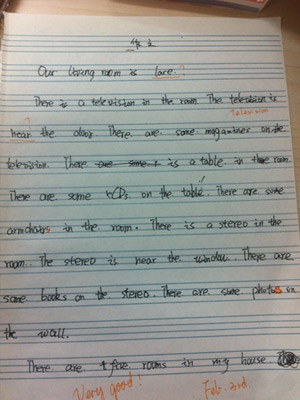 作文
Our living room is lare.?
There is a television in the room. The television is
Television
?
hear the door. There are some magazines on the
television. There are some is a table in the room.
There are some CDs on the table. There are some
armchairs in the room. There is a stereo in the
room. The stereo is near the window. There are
some books on the stereo. There are some photos on
the wall.
There are five rooms in my house
Very good! Feb. 3rd.